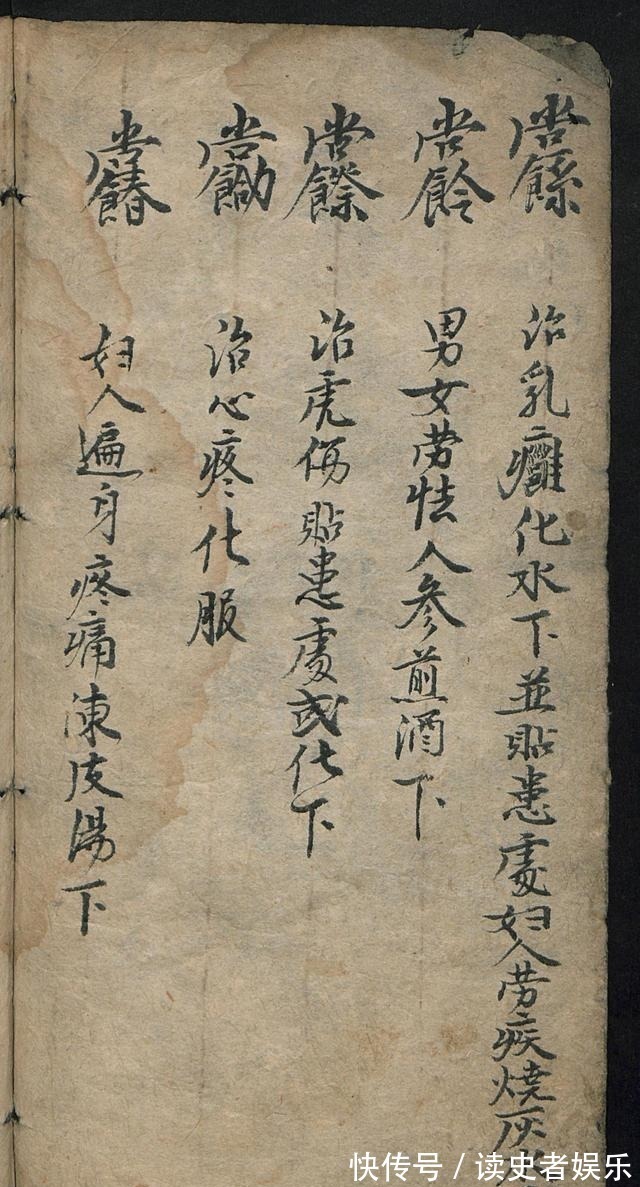 治乳癰化水下並貼患處妇人劳疾燒灰
男女劳怯人參煎酒下
治虎傷貼患處或化下
治心疼化服
妇人遍身疼痛陳皮湯下
快传号/读史者娱乐